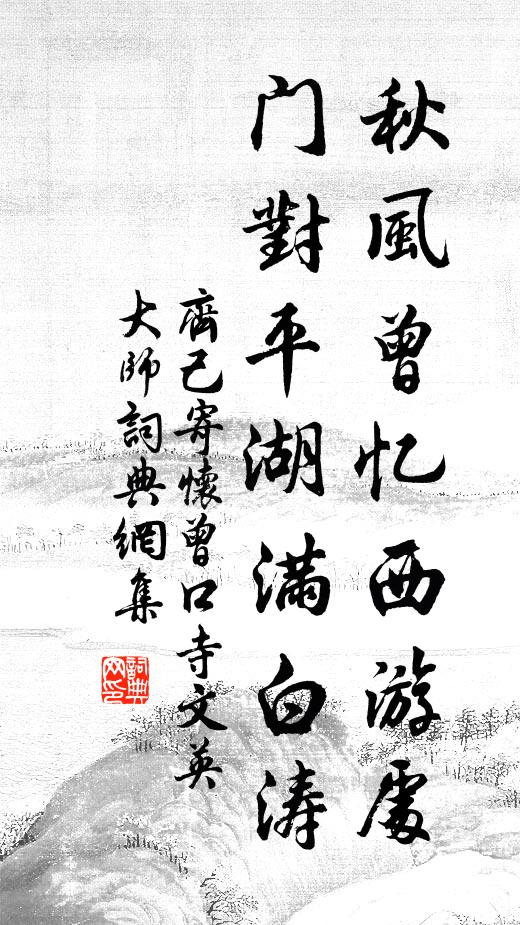 秋風曾忆西游處
门對平湖满白涛
齊己寄懷曾口寺文英
大师詞典網集
詞典网印